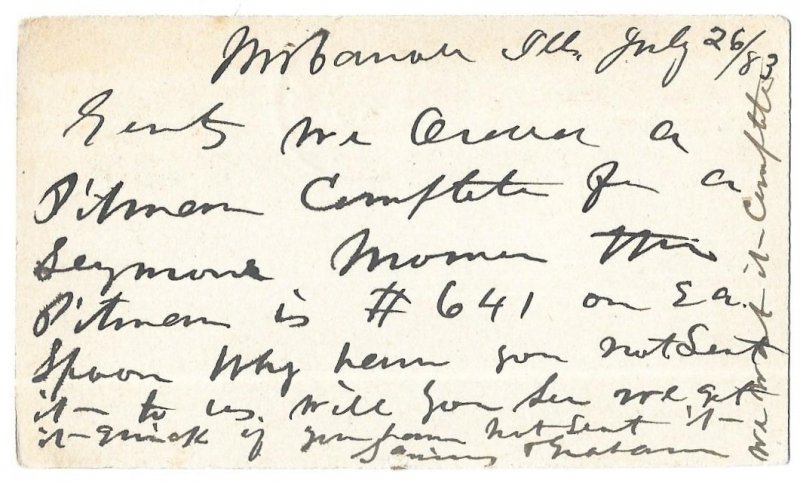 Ills. July 26/83
Gents we Ordered a
Pitman Complete for a
Seymour Mower this
Pitman is # 641 on Ea.
Spoon Why have you not Sent
it to us. Will you See we get
it quick if you have not Sent it
& Graham
we want it Complete